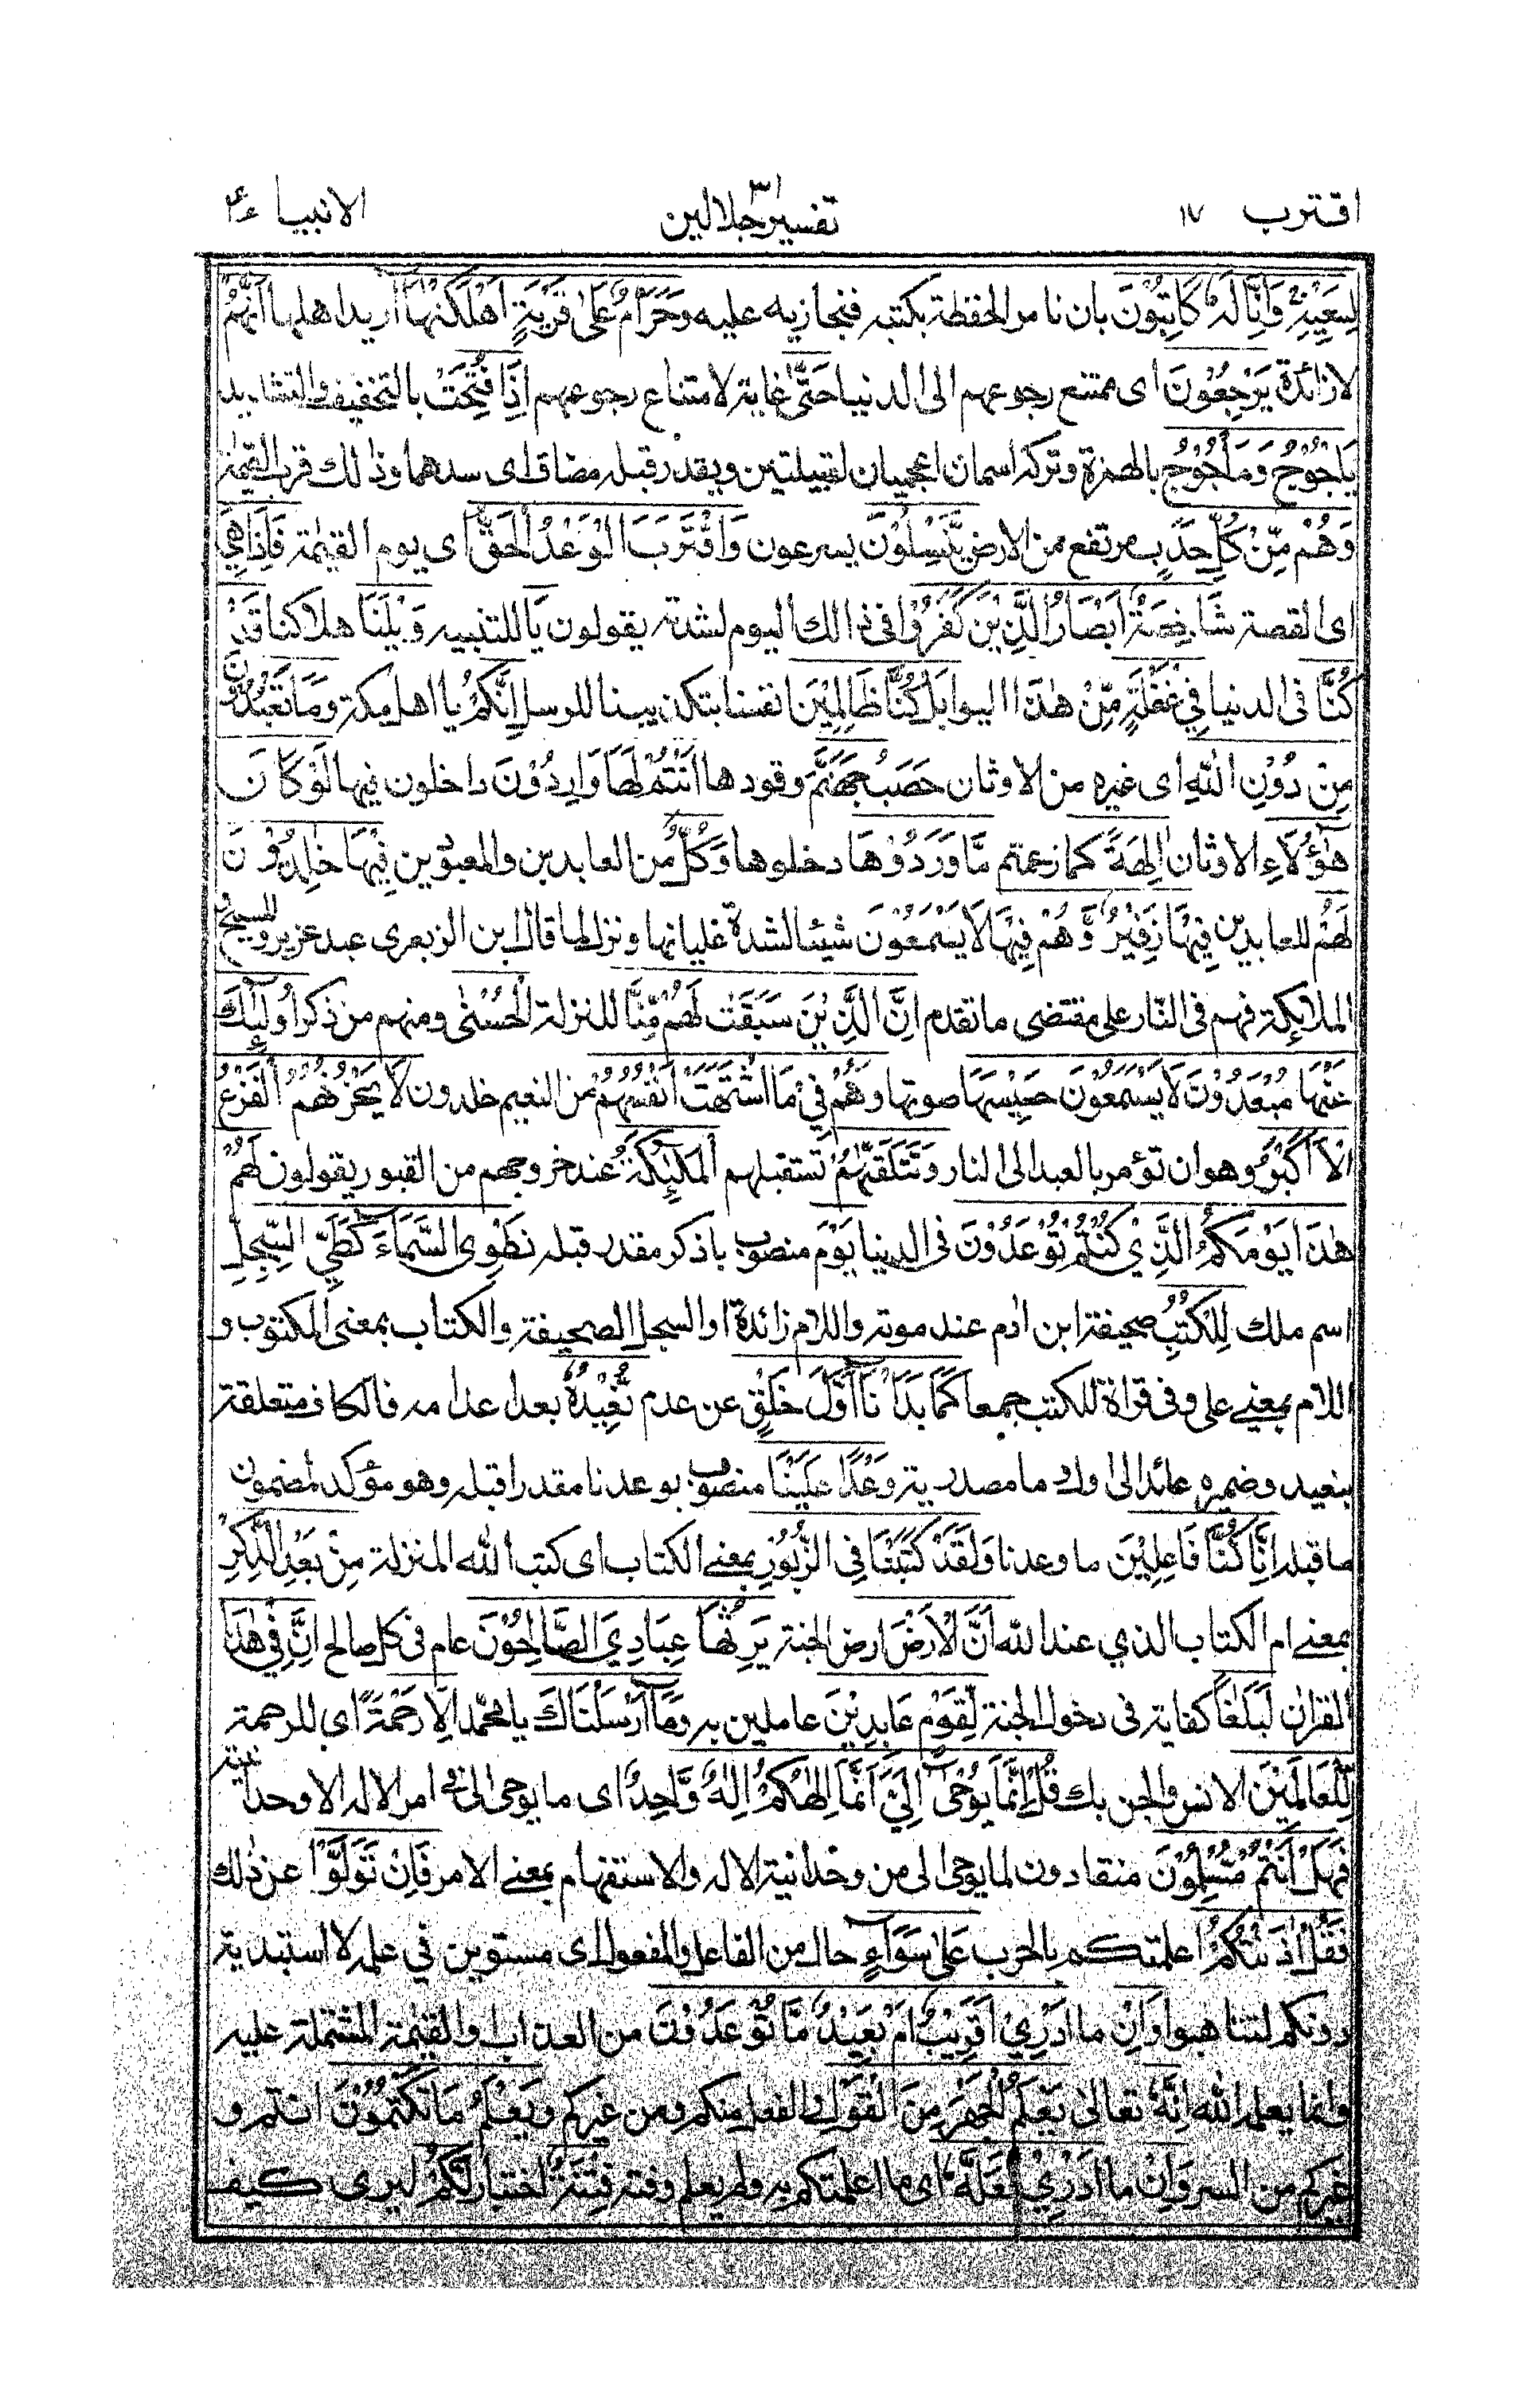 اقترب ١٧
تفسير جلالين
٣١
الانبياء
لِسَعْيِهٖ وَاِنَّا لَهٗ كَاتِبُوْنَ بان نامر الحفظة بكتبه فنجازيه عليه وَحَرَامٌ عَلٰى قَرْيَةٍ اَهْلَكْنٰهَا اريد اهلها اَنَّهُمْ
لا زائدة يَرْجِعُوْنَ اى ممتنع رجوعهم الى الدنيا حَتّٰى غاية لامتناع رجوعهم اِذَا فُتِحَتْ بالتخفيف والتشديد
يَاْجُوْجُ وَمَاْجُوْجُ بالهمزة وتركه اسمان اعجميان لقبيلتين ويقدر قبله مضاف اى سدهما وذالك قرب القيٰمة
وَهُمْ مِّنْ كُلِّ حَدَبٍ مرتفع من الارض يَّنْسِلُوْنَ يسرعون وَاقْتَرَبَ الْوَعْدُ الْحَقُّ اى يوم القيٰمة فَاِذَا هِيَ
اى القصة شَاخِصَةٌ اَبْصَارُ الَّذِيْنَ كَفَرُوْا فى ذالك اليوم لشدته يقولون يَا للتنبيه وَيْلَنَا هلاكنا قَدْ
كُنَّا فى الدنيا فِيْ غَفْلَةٍ مِّنْ هٰذَا اليوم بَلْ كُنَّا ظَالِمِيْنَ انفسنا بتكذيبنا للرسل اِنَّكُمْ يا اهل مكة وَمَا تَعْبُدُوْنَ
مِنْ دُوْنِ اللّٰهِ اى غيره من الاوثان حَصَبُ جَهَنَّمَ وقودها اَنْتُمْ لَهَا وَارِدُوْنَ داخلون فيها لَوْ كَانَ
هٰٓؤُلَآءِ الاوثان اٰلِهَةً كما زعمتم مَّا وَرَدُوْهَا دخلوها وَكُلٌّ من العابدين والمعبودين فِيْهَا خٰلِدُوْنَ
لَهُمْ للعابدين فِيْهَا زَفِيْرٌ وَّهُمْ فِيْهَا لَا يَسْمَعُوْنَ شيئا لشدة غليانها ونزل لما قال ابن الزبعرى عبد عزير والمسيح و
الملائكة فهم فى النار على مقتضى ما تقدم اِنَّ الَّذِيْنَ سَبَقَتْ لَهُمْ مِّنَّا المنزلة الْحُسْنٰى ومنهم من ذكر اُولٰٓئِكَ
عَنْهَا مُبْعَدُوْنَ لَا يَسْمَعُوْنَ حَسِيْسَهَا صوتها وَهُمْ فِيْ مَا اشْتَهَتْ اَنْفُسُهُمْ من النعيم خٰلدون لَا يَحْزُنُهُمُ الْفَزَعُ
الْاَكْبَرُ وهو ان تؤمر بالعبد الى النار وَتَتَلَقّٰهُمُ تستقبلهم الْمَلٰٓئِكَةُ عند خروجهم من القبور يقولون لهم
هٰذَا يَوْمُكُمُ الَّذِيْ كُنْتُمْ تُوْعَدُوْنَ فى الدنيا يَوْمَ منصوب باذكر مقدر قبله نَطْوِى السَّمَآءَ كَطَيِّ السِّجِلِّ
اسم ملك لِلْكُتُبِ صحيفة ابن اٰدم عند موته واللام زائدة او السجل الصحيفة والكتاب بمعنى المكتوب و
اللام بمعنى على وفى قراة للكتب جمعا كَمَا بَدَاْنَا اَوَّلَ خَلْقٍ عن عدم نُّعِيْدُهٗ بعد اعدامه فالكاف متعلقة
بنعيد وضميره عائد الى اول وما مصدرية وَعْدًا عَلَيْنَا منصوب بوعدنا مقدرا قبله وهو مؤكد لمضمون
ما قبله اِنَّا كُنَّا فَاعِلِيْنَ ما وعدنا وَلَقَدْ كَتَبْنَا فِى الزَّبُوْرِ بمعنى الكتاب اى كتب الله المنزلة مِنْ بَعْدِ الذِّكْرِ
بمعنى ام الكتاب الذي عند الله اَنَّ الْاَرْضَ ارض الجنة يَرِثُهَا عِبَادِيَ الصَّالِحُوْنَ عام فى كل صالح اِنَّ فِيْ هٰذَا
القراٰن لَبَلٰغًا كفاية فى دخول الجنة لِّقَوْمٍ عَابِدِيْنَ عاملين به وَمَآ اَرْسَلْنَاكَ يا محمد اِلَّا رَحْمَةً اى للرحمة
لِّلْعَالَمِيْنَ الانس والجن بك قُلْ اِنَّمَا يُوْحٰى اِلَيَّ اَنَّمَا اِلٰهُكُمْ اِلٰهٌ وَّاحِدٌ اى ما يوحى الى فى امر الاله الا وحدانيته
فَهَلْ اَنْتُمْ مُّسْلِمُوْنَ منقادون لما يوحى الى من وحدانية الاله والاستفهام بمعنى الامر فَاِنْ تَوَلَّوْا عن ذلك
فَقُلْ اٰذَنْتُكُمْ اعلمتكم بالحرب عَلٰى سَوَآءٍ حال من الفاعل والمفعول اى مستوين في علمه لا استبد به
دونكم لتتاهبوا وَاِنْ ما اَدْرِيْ اَقَرِيْبٌ اَمْ بَعِيْدٌ مَّا تُوْعَدُوْنَ من العذاب او القيٰمة المشتملة عليه
وانما يعلمه الله اِنَّهٗ تعالى يَعْلَمُ الْجَهْرَ مِنَ الْقَوْلِ والفعل منكم ومن غيركم وَيَعْلَمُ مَا تَكْتُمُوْنَ انتم و
غيركم من السر وَاِنْ ما اَدْرِيْ لَعَلَّهٗ اى ما اعلمتكم به ولم يعلم وقته فِتْنَةٌ اختبار لَّكُمْ ليرى كيف